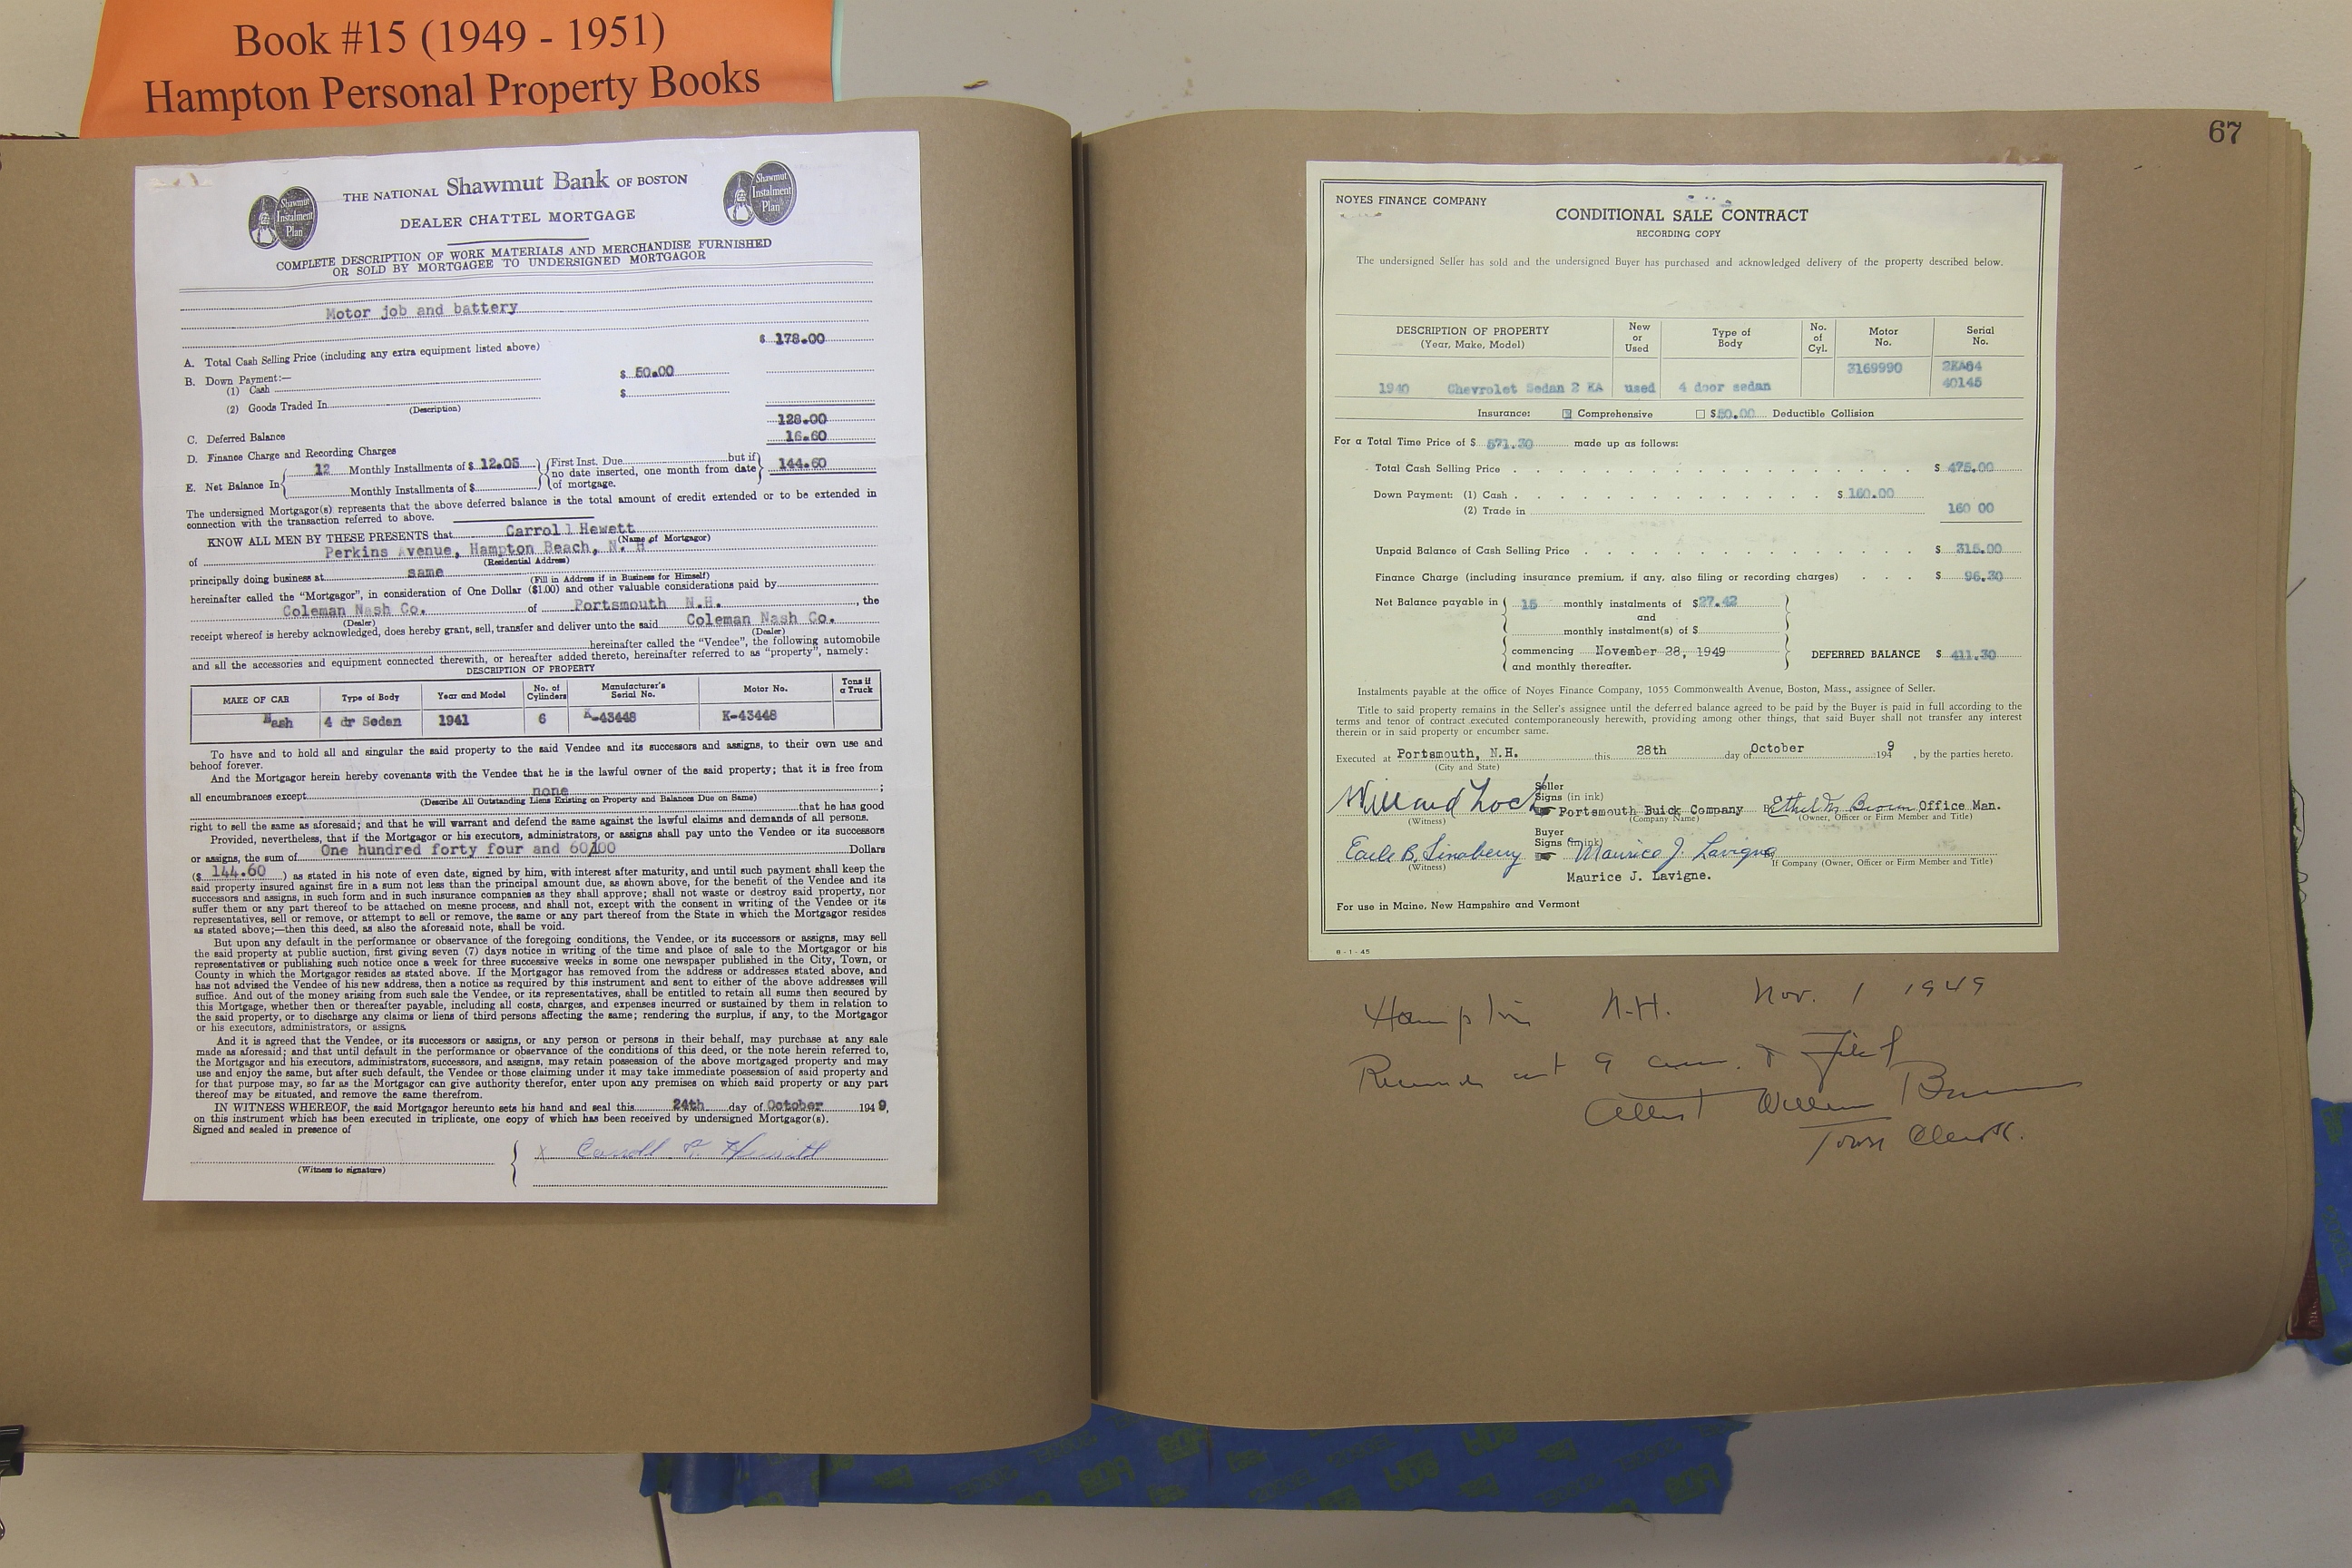 Book #15 (1949 - 1951)
Hampton Personal Property Books
Shawmut Instalment Plan
THE NATIONAL Shawmut Bank OF BOSTON
Shawmut Instalment Plan
DEALER CHATTEL MORTGAGE
COMPLETE DESCRIPTION OF WORK MATERIALS AND MERCHANDISE FURNISHED
OR SOLD BY MORTGAGEE TO UNDERSIGNED MORTGAGOR
Motor job and battery
A. Total Cash Selling Price (including any extra equipment listed above) $ 178.00
B. Down Payment:—
(1) Cash $ 50.00
(2) Goods Traded In $
(Description)
128.00
C. Deferred Balance
16.60
D. Finance Charge and Recording Charges
E. Net Balance In { 12 Monthly Installments of $ 12.05 } { First Inst. Due but if no date inserted, one month from date of mortgage. } 144.60
Monthly Installments of $
The undersigned Mortgagor(s) represents that the above deferred balance is the total amount of credit extended or to be extended in
connection with the transaction referred to above.
KNOW ALL MEN BY THESE PRESENTS that Carroll Hewett
(Name of Mortgagor)
of Perkins Avenue, Hampton Beach, N. H
(Residential Address)
principally doing business at same
(Fill in Address if in Business for Himself)
hereinafter called the "Mortgagor", in consideration of One Dollar ($1.00) and other valuable considerations paid by
Coleman Nash Co. of Portsmouth N.H. , the
(Dealer)
receipt whereof is hereby acknowledged, does hereby grant, sell, transfer and deliver unto the said Coleman Nash Co.
(Dealer)
hereinafter called the "Vendee", the following automobile
and all the accessories and equipment connected therewith, or hereafter added thereto, hereinafter referred to as "property", namely:
DESCRIPTION OF PROPERTY
MAKE OF CAR Type of Body Year and Model No. of Cylinders Manufacturer's Serial No. Motor No. Tons if a Truck
Nash 4 dr Sedan 1941 6 K-43448 K-43448
To have and to hold all and singular the said property to the said Vendee and its successors and assigns, to their own use and
behoof forever.
And the Mortgagor herein hereby covenants with the Vendee that he is the lawful owner of the said property; that it is free from
all encumbrances except none ;
(Describe All Outstanding Liens Existing on Property and Balances Due on Same)
that he has good
right to sell the same as aforesaid; and that he will warrant and defend the same against the lawful claims and demands of all persons.
Provided, nevertheless, that if the Mortgagor or his executors, administrators, or assigns shall pay unto the Vendee or its successors
or assigns, the sum of One hundred forty four and 60/100 Dollars
($ 144.60 ) as stated in his note of even date, signed by him, with interest after maturity, and until such payment shall keep the
said property insured against fire in a sum not less than the principal amount due, as shown above, for the benefit of the Vendee and its
successors and assigns, in such form and in such insurance companies as they shall approve; shall not waste or destroy said property, nor
suffer them or any part thereof to be attached on mesne process, and shall not, except with the consent in writing of the Vendee or its
representatives, sell or remove, or attempt to sell or remove, the same or any part thereof from the State in which the Mortgagor resides
as stated above;—then this deed, as also the aforesaid note, shall be void.
But upon any default in the performance or observance of the foregoing conditions, the Vendee, or its successors or assigns, may sell
the said property at public auction, first giving seven (7) days notice in writing of the time and place of sale to the Mortgagor or his
representatives or publishing such notice once a week for three successive weeks in some one newspaper published in the City, Town, or
County in which the Mortgagor resides as stated above. If the Mortgagor has removed from the address or addresses stated above, and
has not advised the Vendee of his new address, then a notice as required by this instrument and sent to either of the above addresses will
suffice. And out of the money arising from such sale the Vendee, or its representatives, shall be entitled to retain all sums then secured by
this Mortgage, whether then or thereafter payable, including all costs, charges, and expenses incurred or sustained by them in relation to
the said property, or to discharge any claims or liens of third persons affecting the same; rendering the surplus, if any, to the Mortgagor
or his executors, administrators, or assigns.
And it is agreed that the Vendee, or its successors or assigns, or any person or persons in their behalf, may purchase at any sale
made as aforesaid; and that until default in the performance or observance of the conditions of this deed, or the note herein referred to,
the Mortgagor and his executors, administrators, successors, and assigns, may retain possession of the above mortgaged property and may
use and enjoy the same, but after such default, the Vendee or those claiming under it may take immediate possession of said property and
for that purpose may, so far as the Mortgagor can give authority therefor, enter upon any premises on which said property or any part
thereof may be situated, and remove the same therefrom.
IN WITNESS WHEREOF, the said Mortgagor hereunto sets his hand and seal this 24th day of October 1949,
on this instrument which has been executed in triplicate, one copy of which has been received by undersigned Mortgagor(s).
Signed and sealed in presence of
x Carroll F. Hewitt
(Witness to signature)
67
NOYES FINANCE COMPANY
CONDITIONAL SALE CONTRACT
RECORDING COPY
The undersigned Seller has sold and the undersigned Buyer has purchased and acknowledged delivery of the property described below.
DESCRIPTION OF PROPERTY (Year, Make, Model) New or Used Type of Body No. of Cyl. Motor No. Serial No.
3169990 2KA64
1940 Chevrolet Sedan 2 KA used 4 door sedan 40145
Insurance: Comprehensive $50.00 Deductible Collision
For a Total Time Price of $ 571.30 made up as follows:
Total Cash Selling Price $ 475.00
Down Payment: (1) Cash $ 160.00
(2) Trade in 160 00
Unpaid Balance of Cash Selling Price $ 315.00
Finance Charge (including insurance premium, if any, also filing or recording charges) $ 96.30
Net Balance payable in { 15 monthly instalments of $27.42
and
monthly instalment(s) of $
commencing November 28, 1949 DEFERRED BALANCE $ 411.30
and monthly thereafter.
Instalments payable at the office of Noyes Finance Company, 1055 Commonwealth Avenue, Boston, Mass., assignee of Seller.
Title to said property remains in the Seller's assignee until the deferred balance agreed to be paid by the Buyer is paid in full according to the
terms and tenor of contract executed contemporaneously herewith, providing among other things, that said Buyer shall not transfer any interest
therein or in said property or encumber same.
Executed at Portsmouth, N.H. this 28th day of October 1949 , by the parties hereto.
(City and State)
Willard Seller Signs (in ink) Portsmouth Buick Company By Ethel M. Brown Office Man.
(Witness) (Company Name) (Owner, Officer or Firm Member and Title)
Earle B. Buyer Signs (in ink) Maurice J. Lavigne By
(Witness) If Company (Owner, Officer or Firm Member and Title)
Maurice J. Lavigne.
For use in Maine, New Hampshire and Vermont
6-1-45
Hampton N.H. Nov. 1 1949
Received at 9 a.m. & Filed
Attest William Brown
Town Clerk.